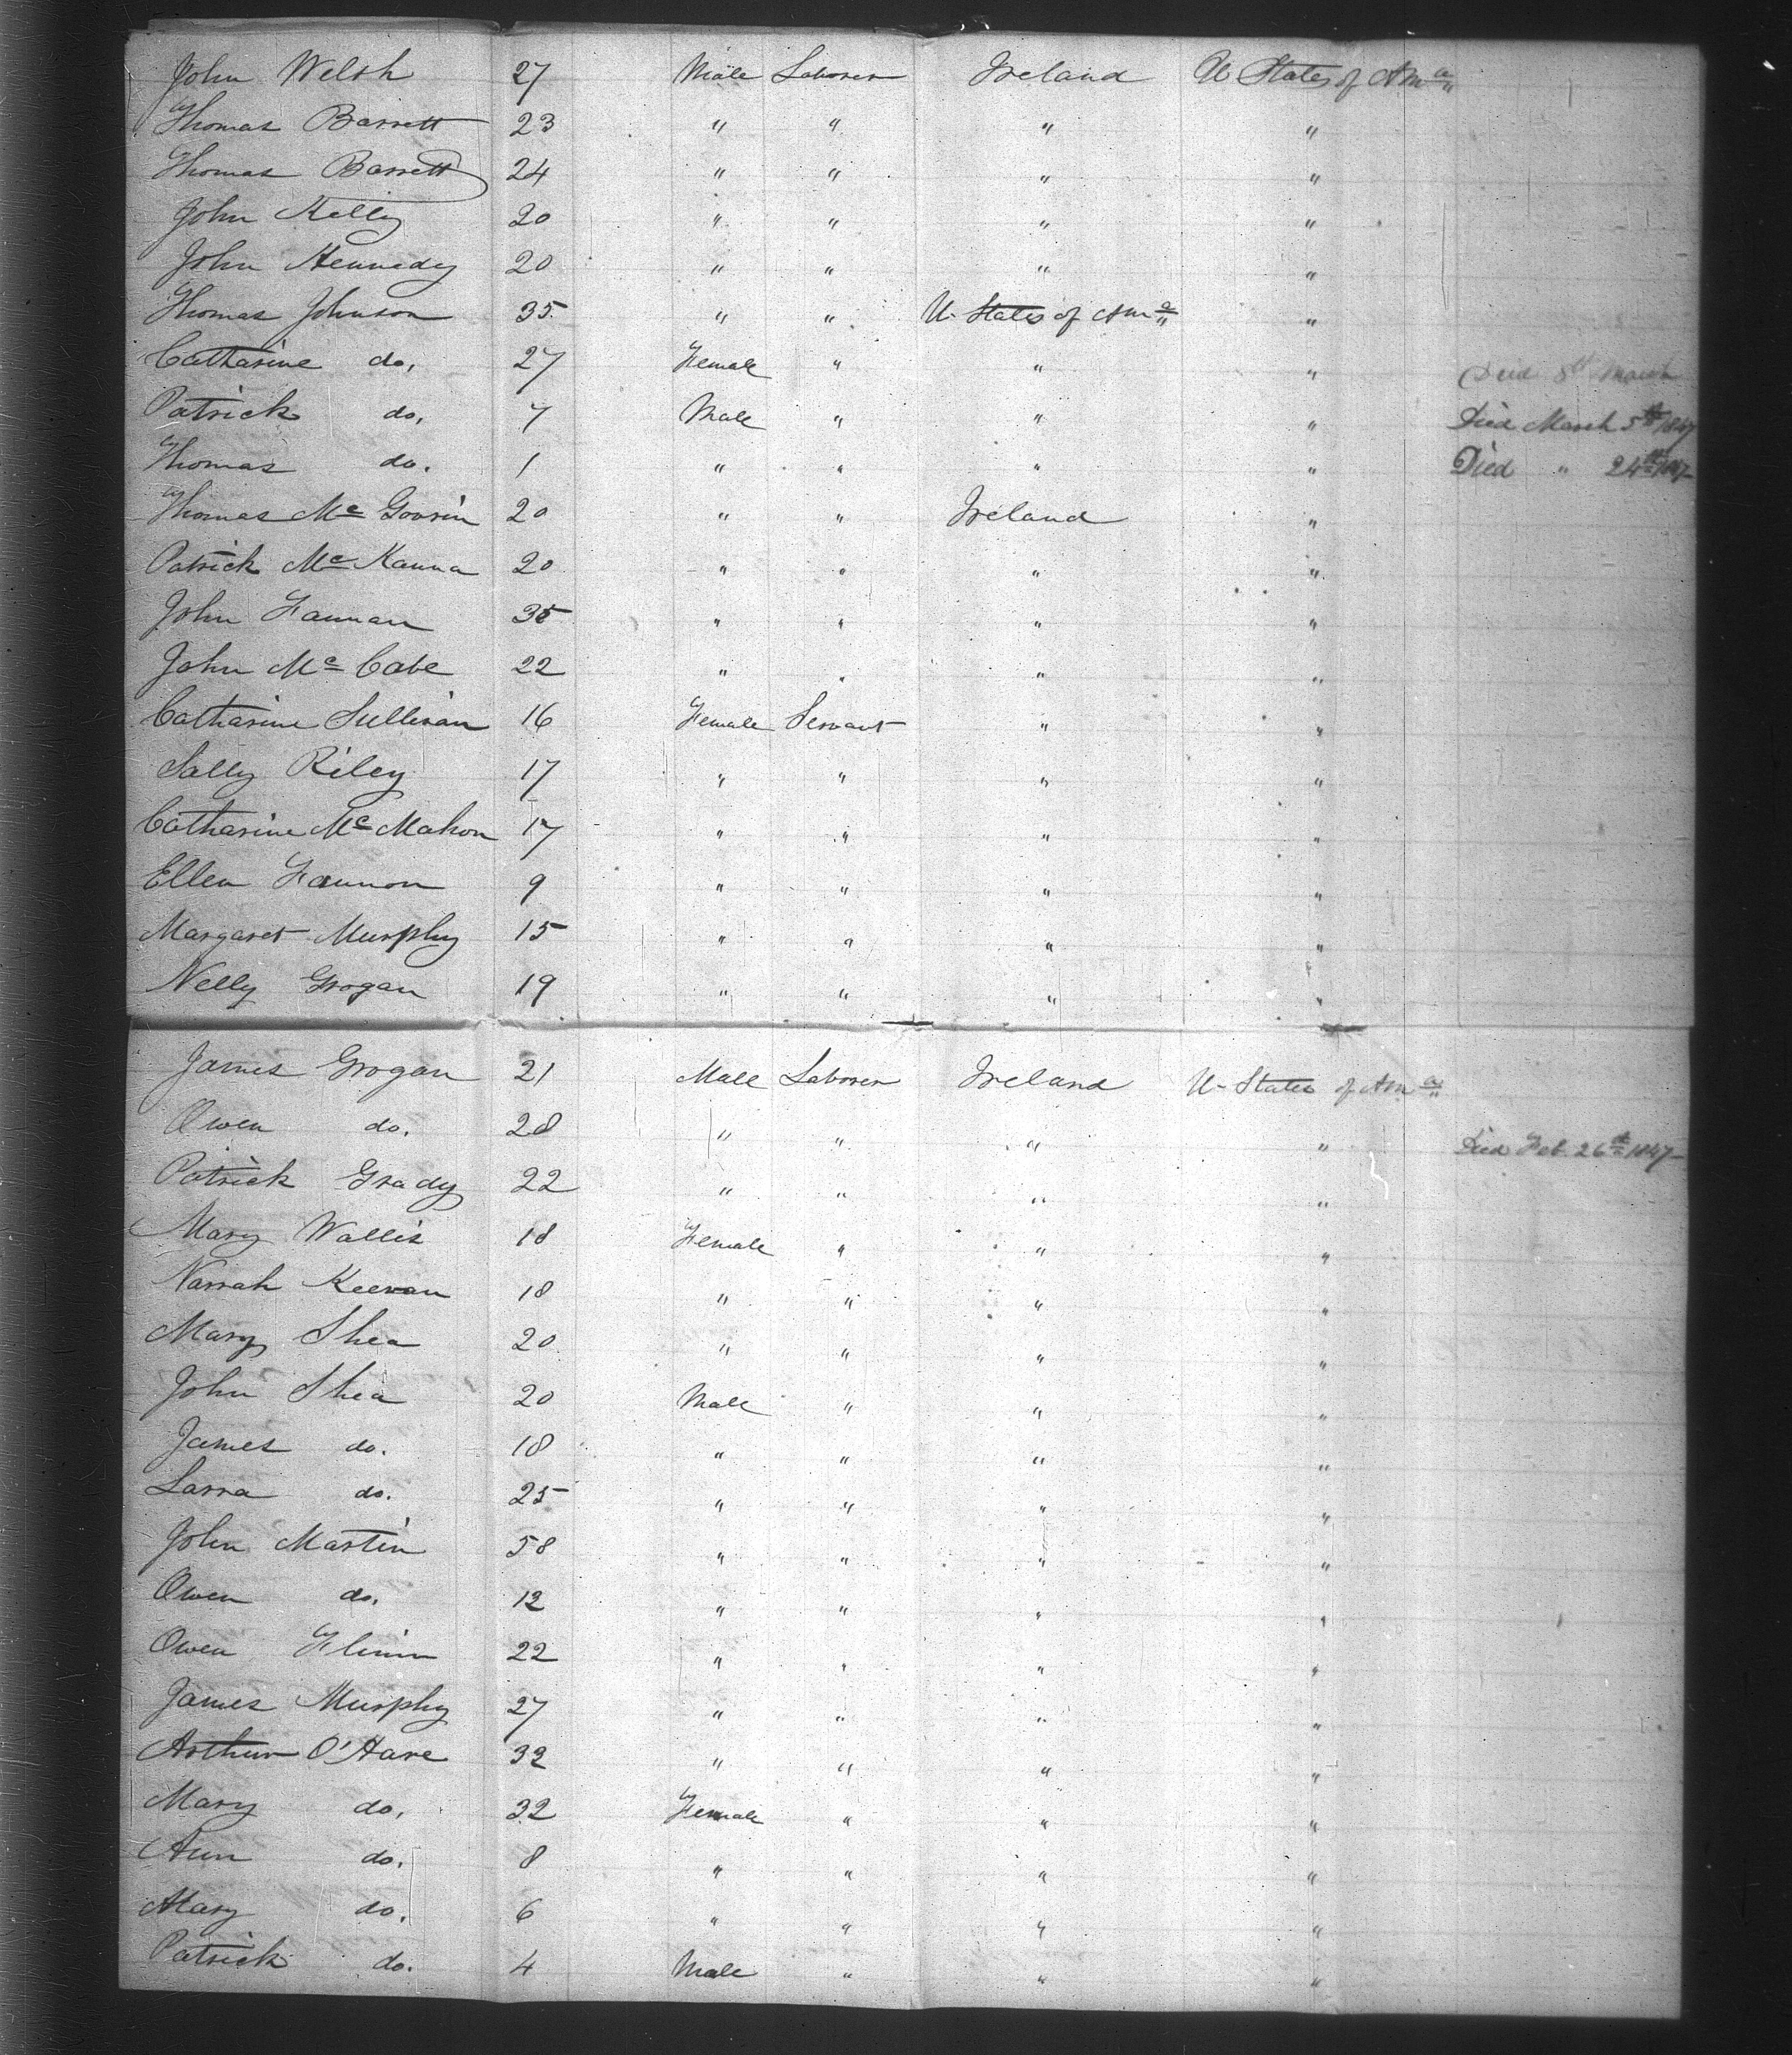 John Welsh 27 Male Laborer Ireland U States of Ama
Thomas Barrett 23 " " " "
Thomas Barrett 24 " " " "
John Kelly 20 " " " "
John Kennedy 20 " " " "
Thomas Johnson 35 " " U. States of Ama "
Catharine do. 27 Female " " " Died 8th March
Patrick do. 7 Male " " " Died March 5th 1847
Thomas do. 1 " " " " Died " 24th 1847
Thomas Mc Govrin 20 " " Ireland "
Patrick Mc Kanna 20 " " " "
John Fannan 35 " " " "
John Mc Cabe 22 " " " "
Catharine Sullivan 16 Female Servant " "
Sally Riley 17 " " " "
Catharine Mc Mahon 17 " " " "
Ellen Fannon 9 " " " "
Margaret Murphy 15 " " " "
Nelly Grogan 19 " " " "
James Grogan 21 Male Laborer Ireland U- States of Ama
Owen do. 28 " " " " Died Feb. 26th 1847
Patrick Grady 22 " " " "
Mary Wallis 18 Female " " "
Narrah Keevan 18 " " " "
Mary Shea 20 " " " "
John Shea 20 Male " " "
James do. 18 " " " "
Larra do. 25 " " " "
John Martin 58 " " " "
Owen do. 12 " " " "
Owen Flinin 22 " " " "
James Murphy 27 " " " "
Arthur O'Hare 32 " " " "
Mary do. 32 Female " " "
Ann do. 8 " " " "
Mary do. 6 " " " "
Patrick do. 4 Male " " "